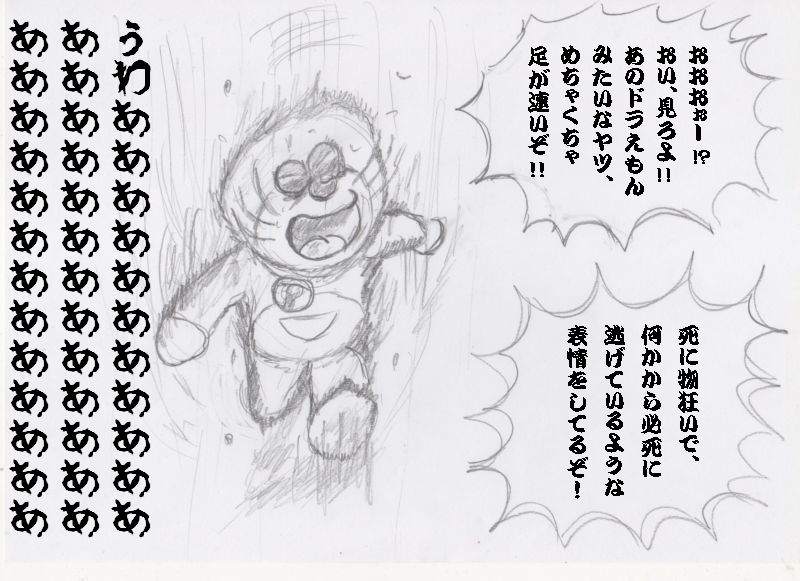 おおおぉー!?
おい、見ろよ!!
あのドラえもん
みたいなヤツ、
めちゃくちゃ
足が速いぞ!!
死に物狂いで、
何かから必死に
逃げているような
表情をしてるぞ!
うわあああああああああああ
あああああああああああああ
あああああああああああああ